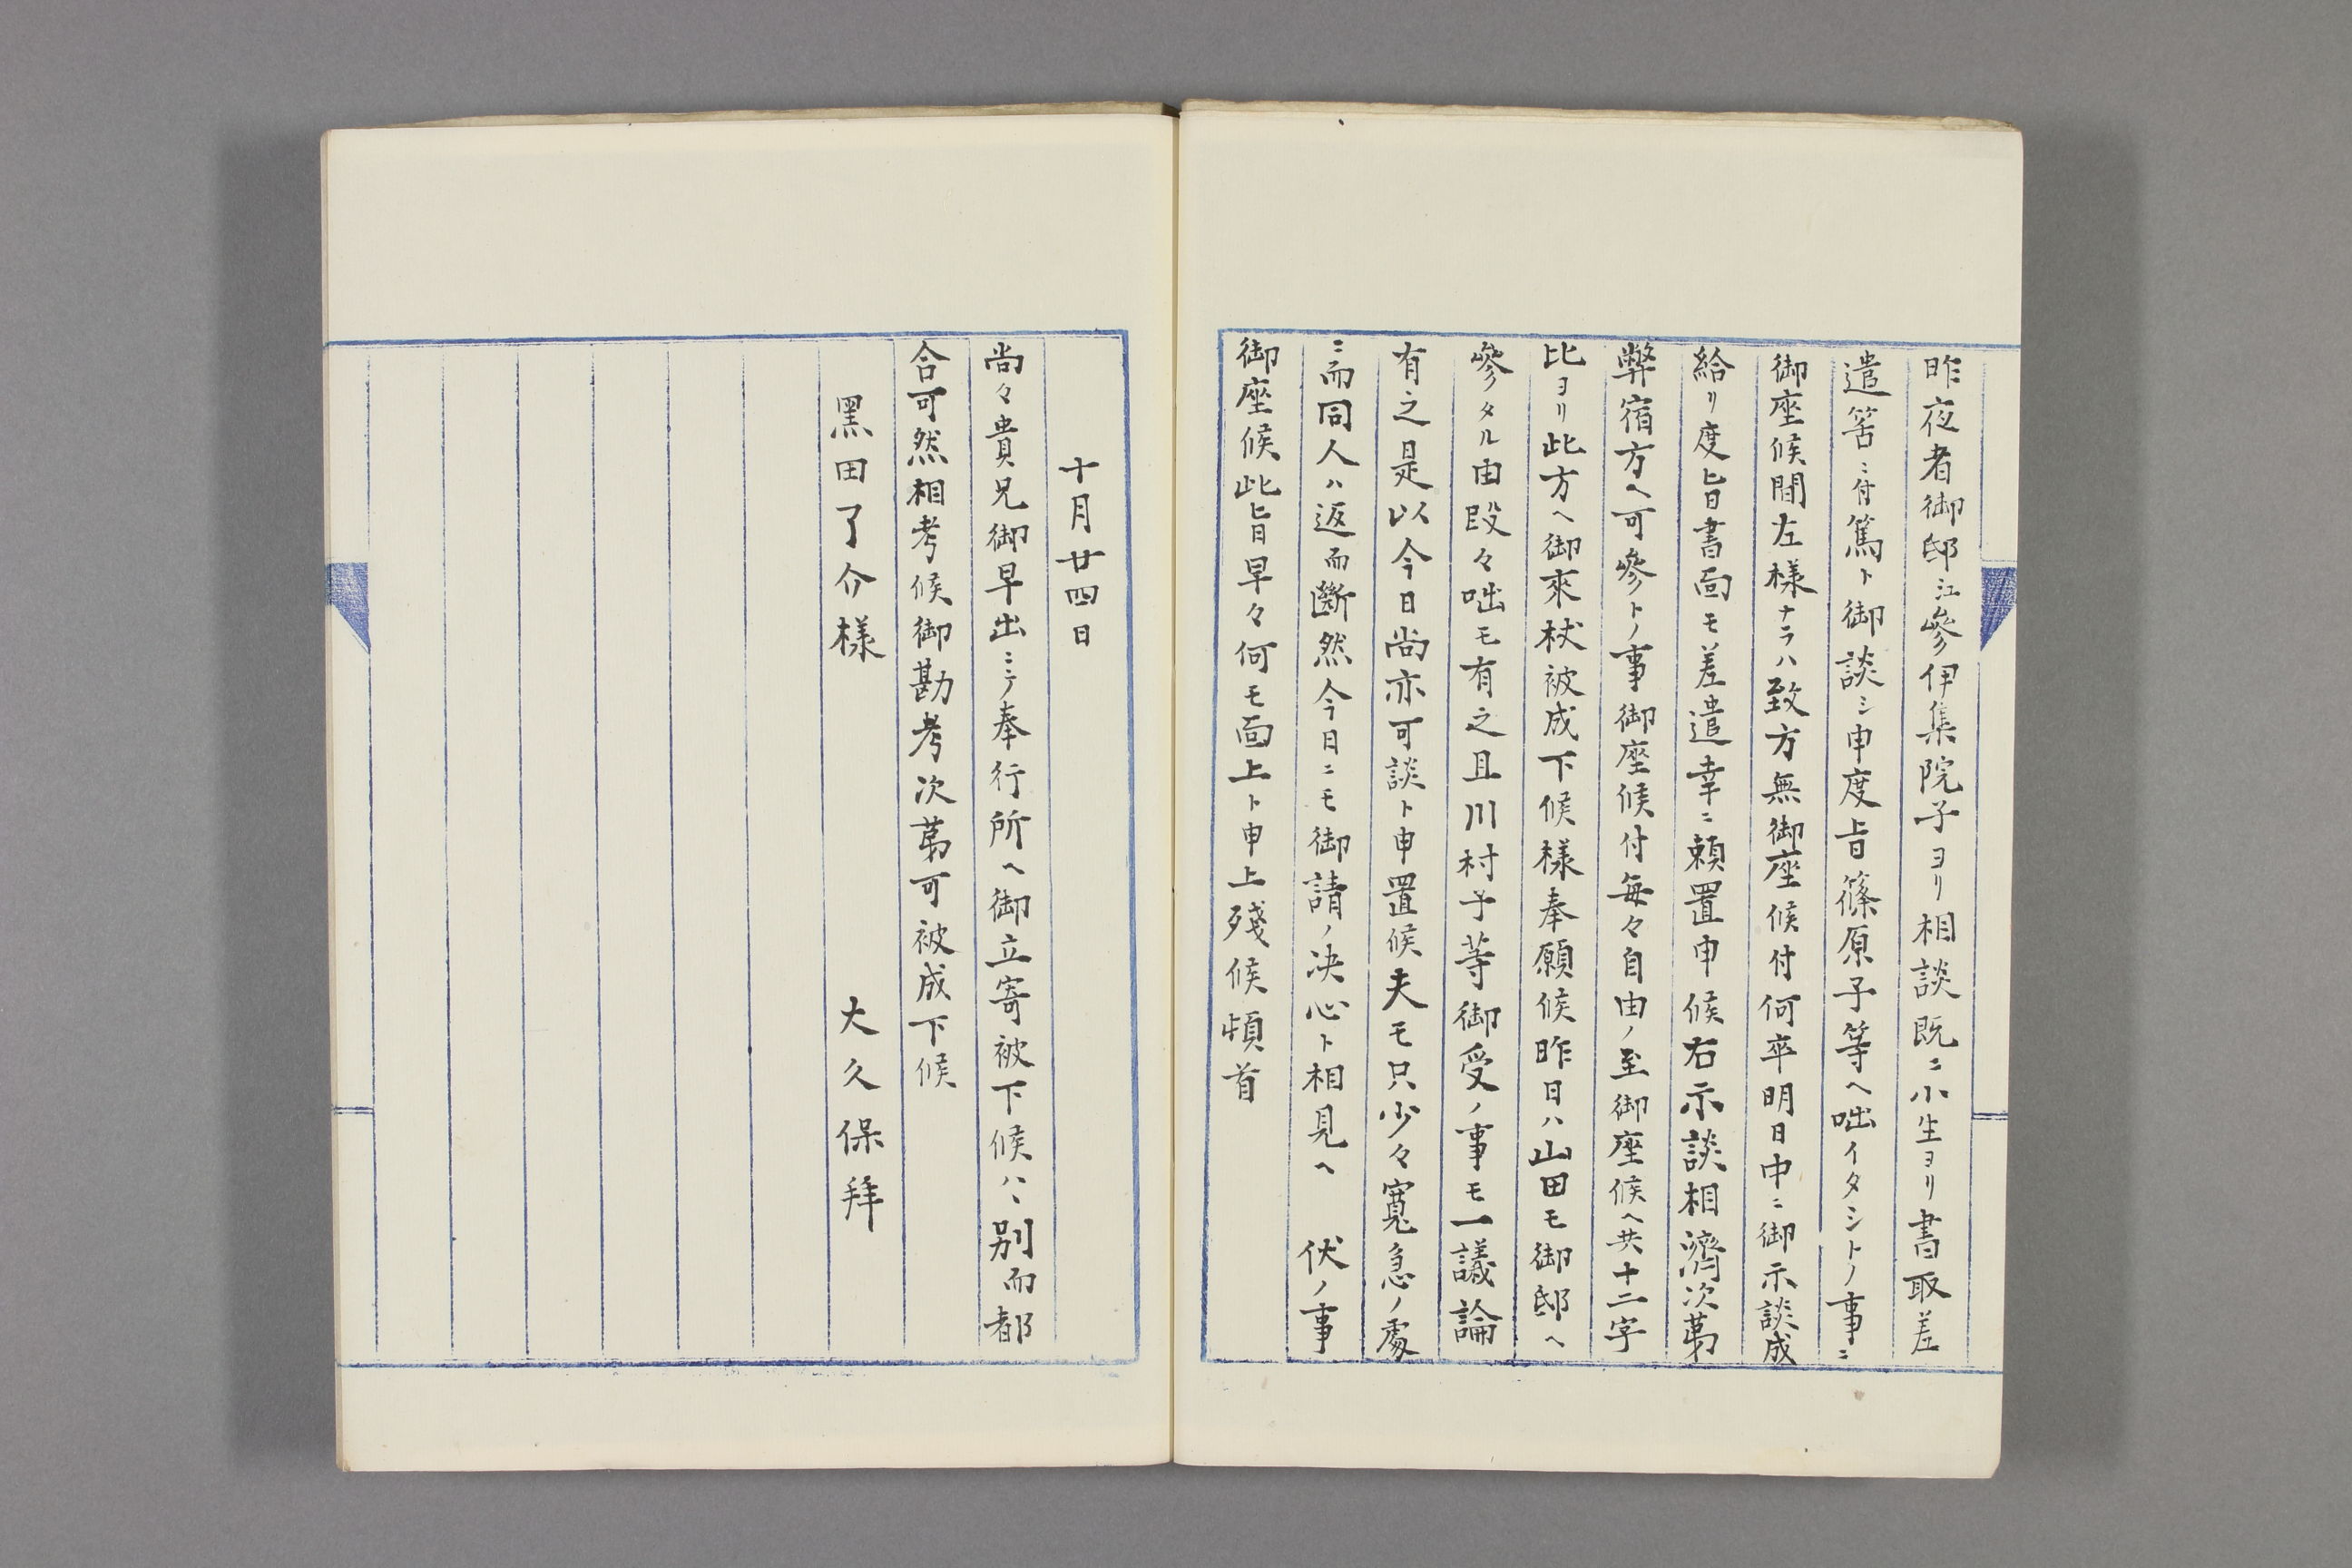 昨夜者御邸ニ江參伊集院子ヨリ相談既ニ小生ヨリ書取差
遣筈ニ付篤ト御談シ申度旨篠原子等ヘ咄イタシトノ事ニ
御座候間左樣ナラハ致方無御座候付何卒明日中ニ御示談成
給リ度旨書面モ差遣幸ニ頼置申候右示談相濟次第
弊宿方ヘ可參トノ事御座候付毎々自由ノ至御座候ヘ共十二字
比ヨリ此方ヘ御來杖被成下候樣奉願候昨日ハ山田モ御邸ヘ
參タル由段々咄モ有之且川村子等御受ノ事モ一議論
有之是以今日尚亦可談ト申置候夫モ只少々寬急ノ處
ニ而同人ハ返而斷然今日ニモ御請ノ决心ト相見ヘ 伏ノ事
御座候此旨早々何モ面上ト申上殘候頓首
十月廿四日
尚々貴兄御早出ニテ奉行所ヘ御立寄被下候ハヽ別而都
合可然相考候御勘考次第可被成下候
黑田了介樣 大久保拜